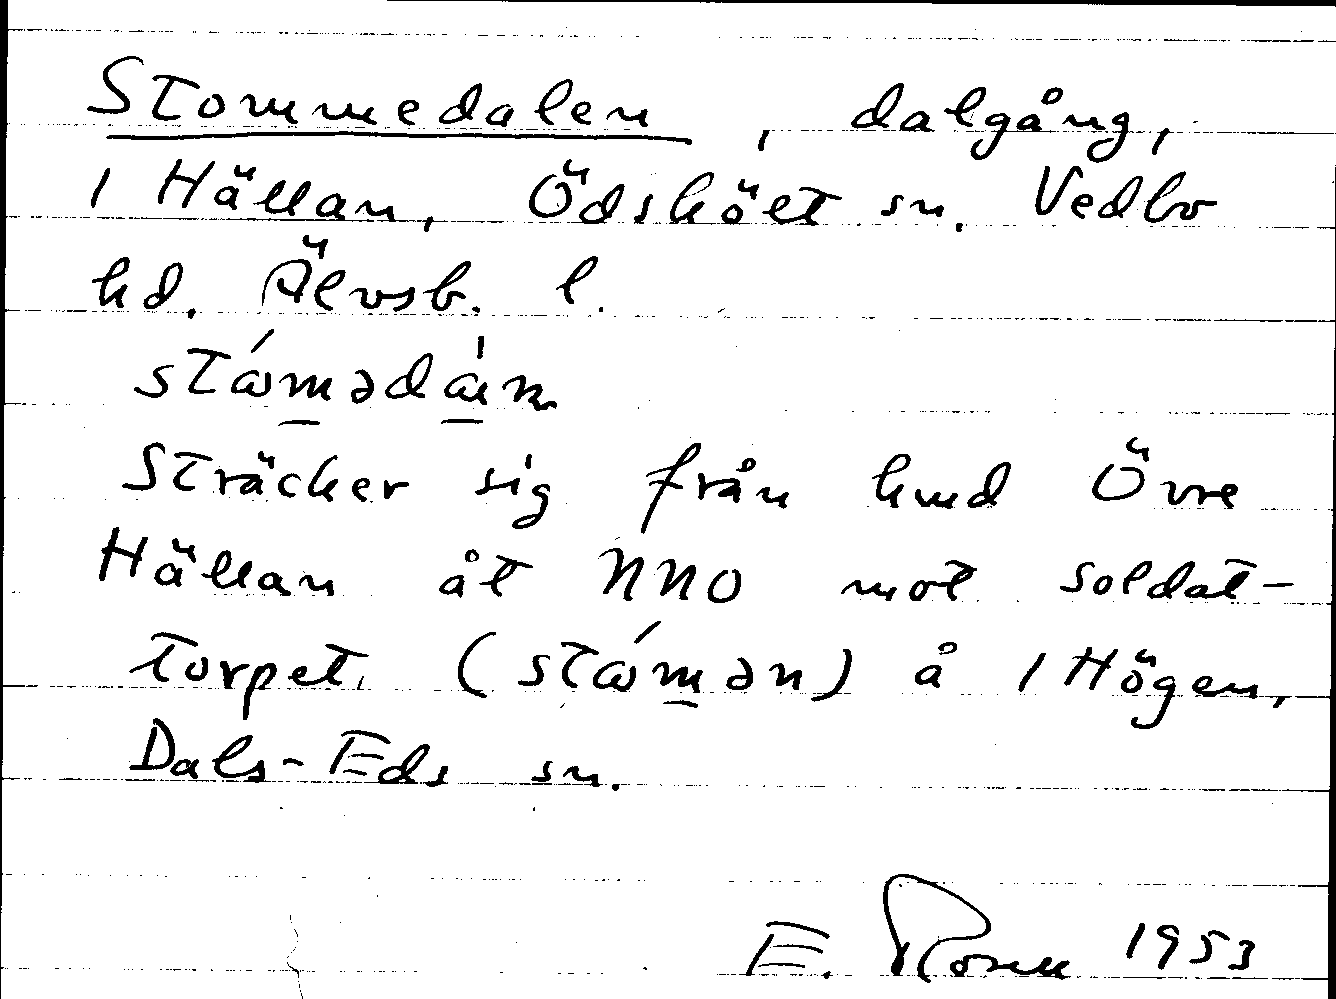 Stommedalen, dalgång,
i Hällan, Ödskölt sn. Vedbo
hd. Älvsb. l.
Sträcker sig från hmd Övre
Hällan åt NNO mot soldat-
torpet (stɷ́mən) å i Högen,
Dals-Eds sn.
E. Rosell 1953